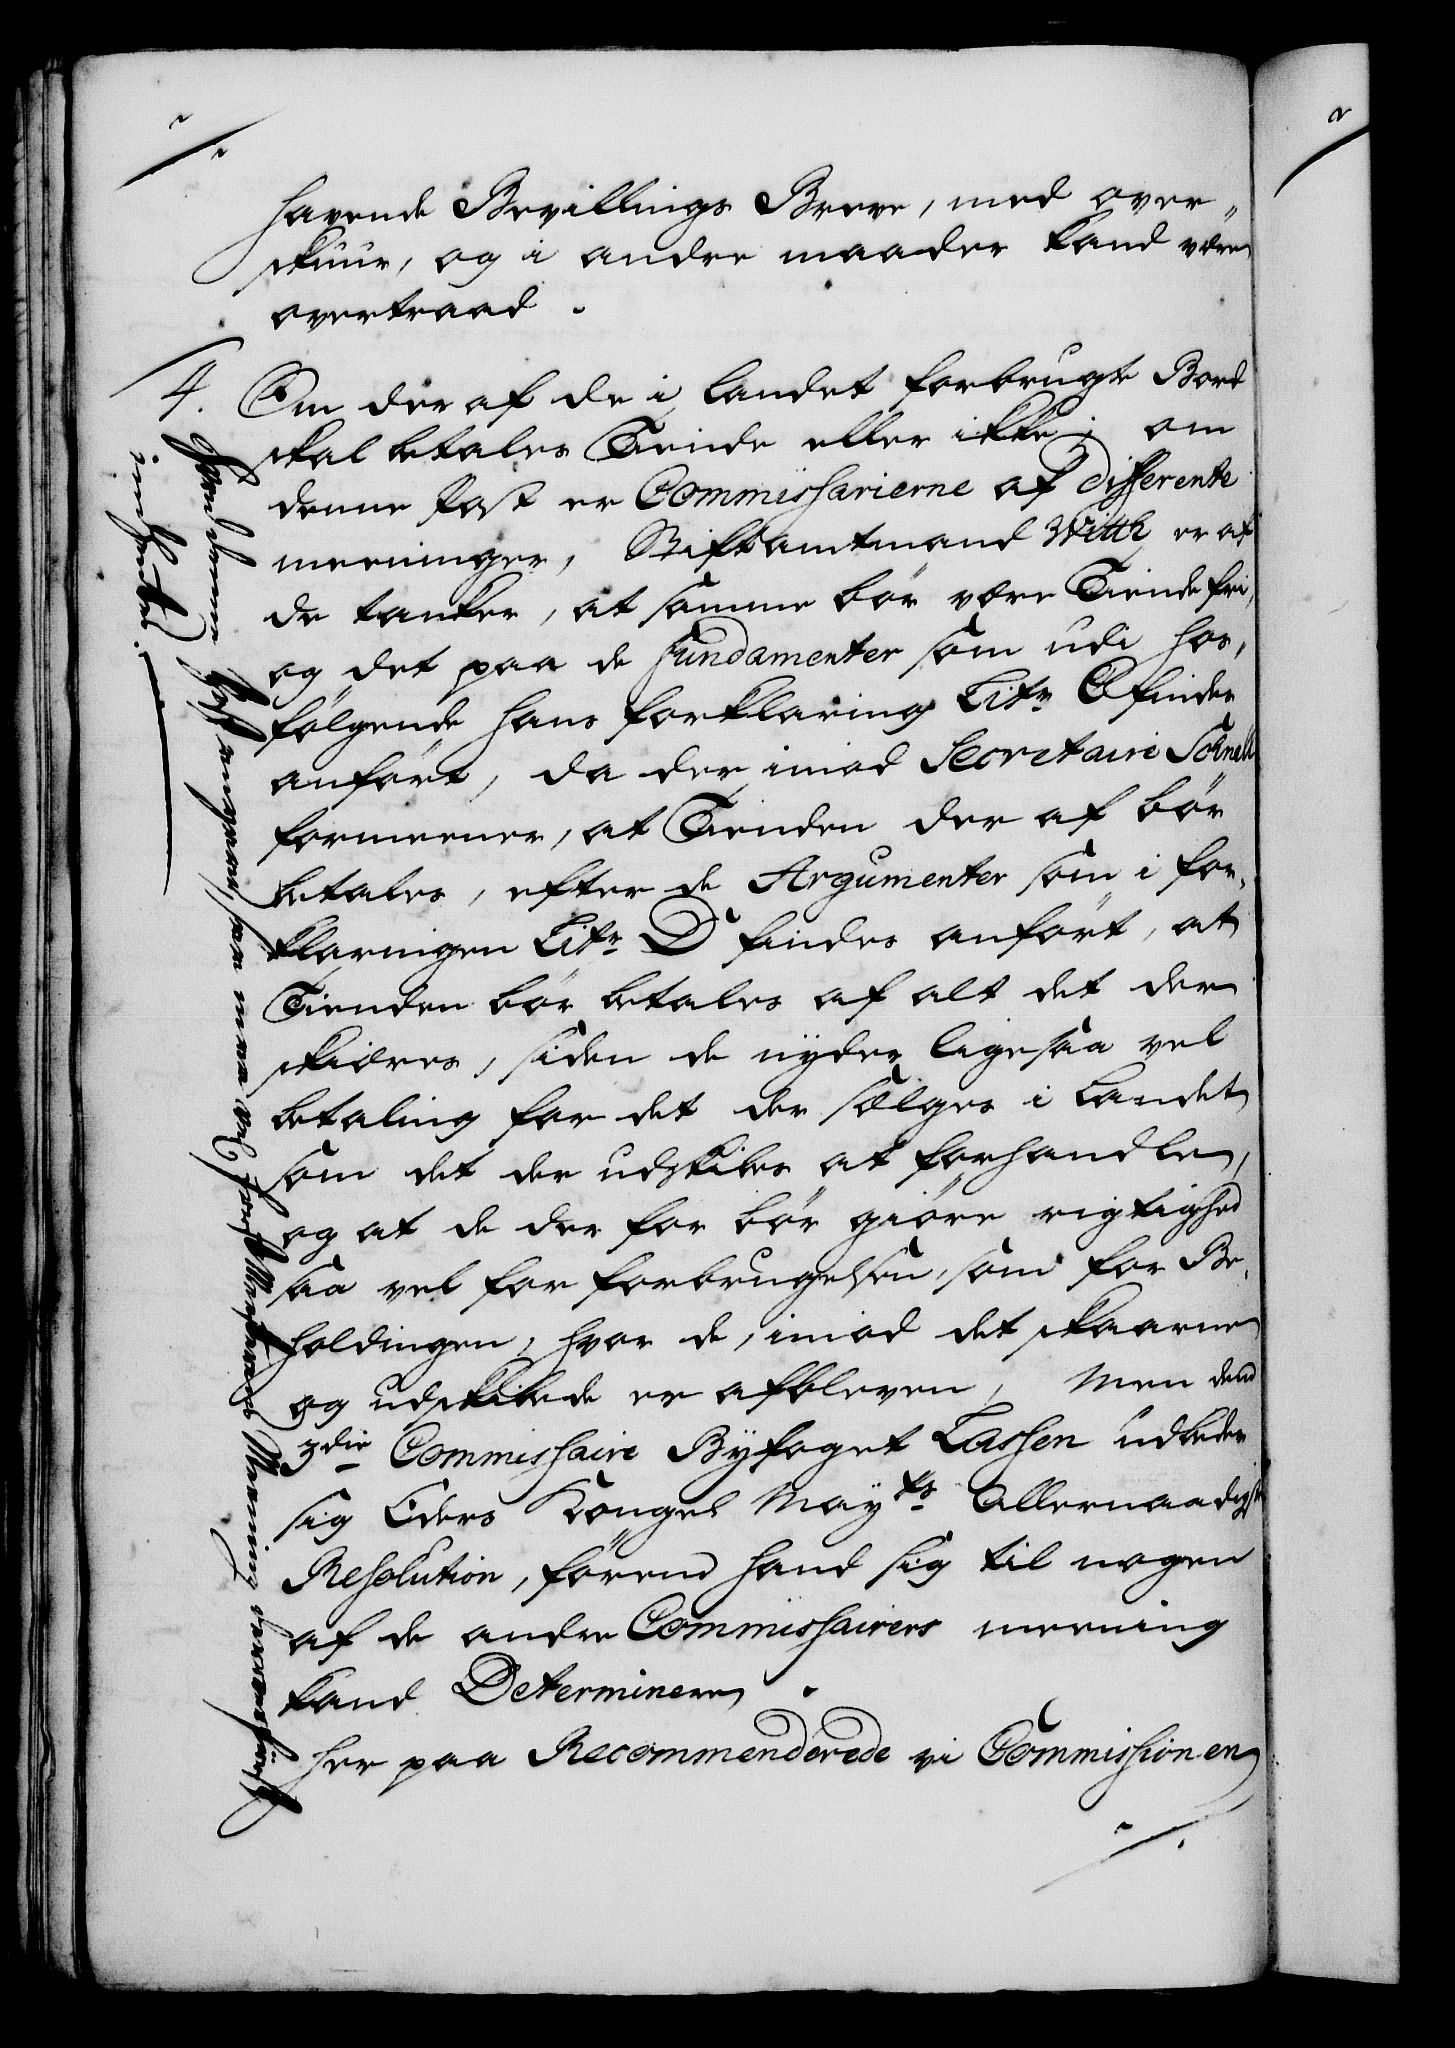 havende Bevillings Breve, med over„
skuur, og i andre maader kand være
overtraad.
4. Om der af de i Landet forbrugte Bord
skal betales Tiende eller ikke; om
denne Post er Commissarierne af differente
meeninger, Stiftamtmand Witth er af
de tanker, at samme bør være Tiende fri,
og det paa de fundamenter som udi hos,
følgende hans forklaring Litr C findes
anført, da der imod Secretaire Schnell
formeener, at Tienden der af bør
betales, efter de Argumenter som i for,
klaringen Litr D findes anført, at
Tienden bør betales af alt det der
skiæres, siden de nyder ligesaa vel
betaling for det der sælges i Landet
som det der udskibes at forhandle,
og at de der for bør giøre rigtighed
saa vel for forbrugelsen, som for Be,
holdingen, hvor de, imod det skaarne
og udskibede er afbleven, Men dend
3die Commissaire Byfoget Lassen udbeder
sig Eders Kongel Mayts Allernaadigste
Resolution, førend hand sig til nogen
af de andre Commissairers meening
kand Determinere.
Her paa Recommenderede vi Commissionen
Hvad denne Post angaar, saa maa ved først Meening
indhentes.